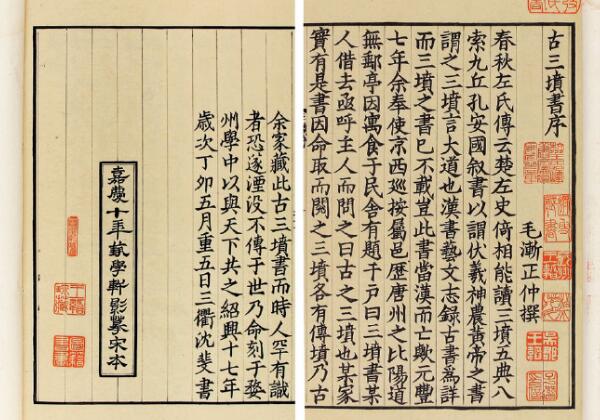 古三墳書序
毛漸正仲撰
春秋左氏傳云楚左史倚相能讀三墳五典八
索九丘孔安國叙書以謂伏羲神農黃帝之書
謂之三墳言大道也漢書藝文志錄古書為詳
而三墳之書已不載豈此書當漢而亡歟元豐
七年余奉使京西巡按屬邑歷唐州之比陽道
無郵亭因寓食于民舍有題于戶曰三墳書某
人借去亟呼主人而問之曰古之三墳也某家
實有是書因命取而閱之三墳各有傳墳乃古
余家藏此古三墳書而時人罕有識
者恐遂湮没不傳于世乃命刻于婺
州學中以與天下共之紹興十七年
歲次丁卯五月重五日三衢沈斐書
嘉慶十年蓺學軒影摹宋本